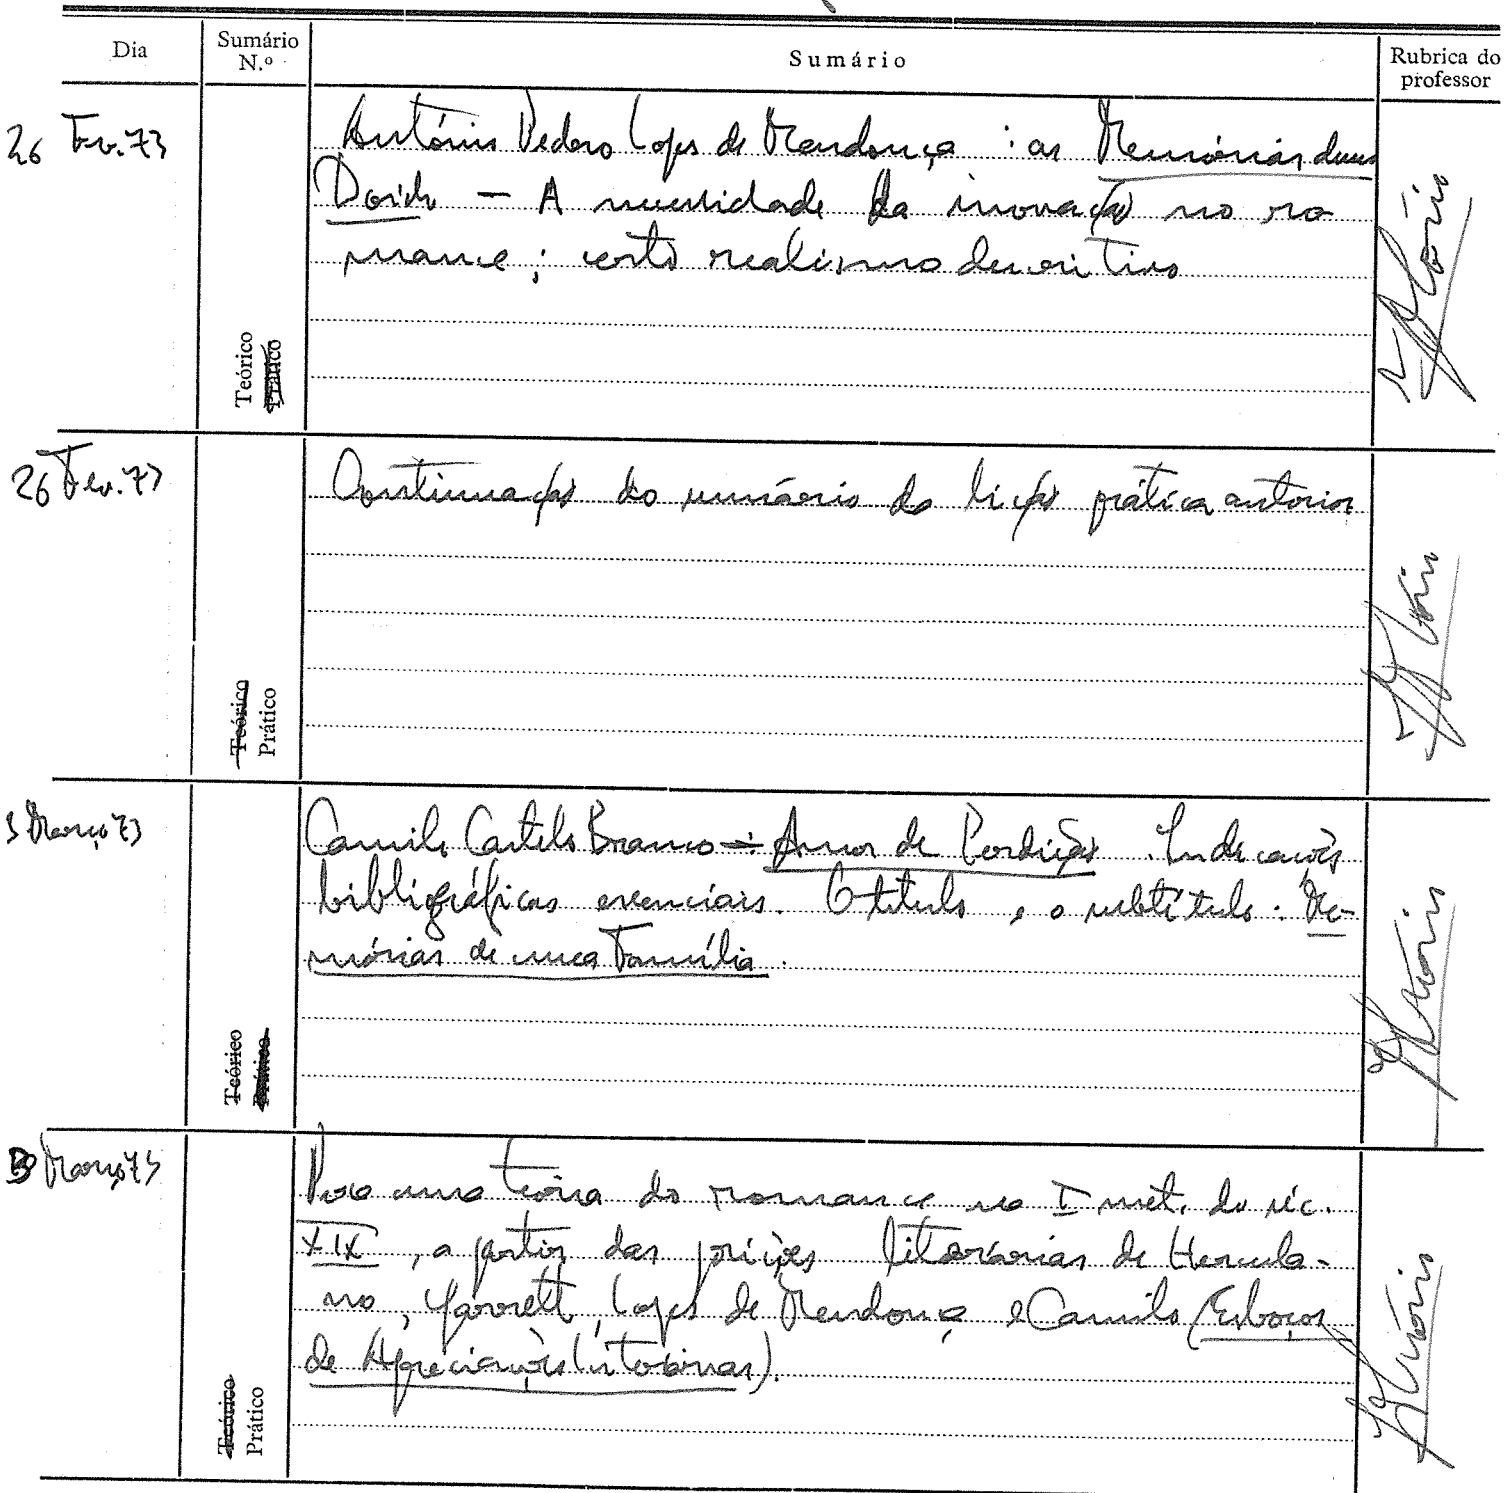 Dia
Sumário
N.º
Sumário
Rubrica do
professor
26 Fev. 73
António Pedro Lopes de Mendonça : as Memórias dum
Doido — A necessidade da inovação no ro
mance ; certo realismo descritivo
Teórico
Prático
26 Fev. 73
Continuação do sumário da lição prática anterior
Teórico
Prático
5 Março 73
Camilo Castelo Branco — Amor de Perdição. Indicações
bibliográficas essenciais. O título e o subtítulo : Me-
mórias de uma Família.
Teórico
Prático
5 Março 73
Para uma teoria do romance na I met. do séc.
XIX, a partir das posições literárias de Hercula-
no, Garrett, Lopes de Mendonça e Camilo (Esboços
de Apreciações Literárias).
Teórico
Prático